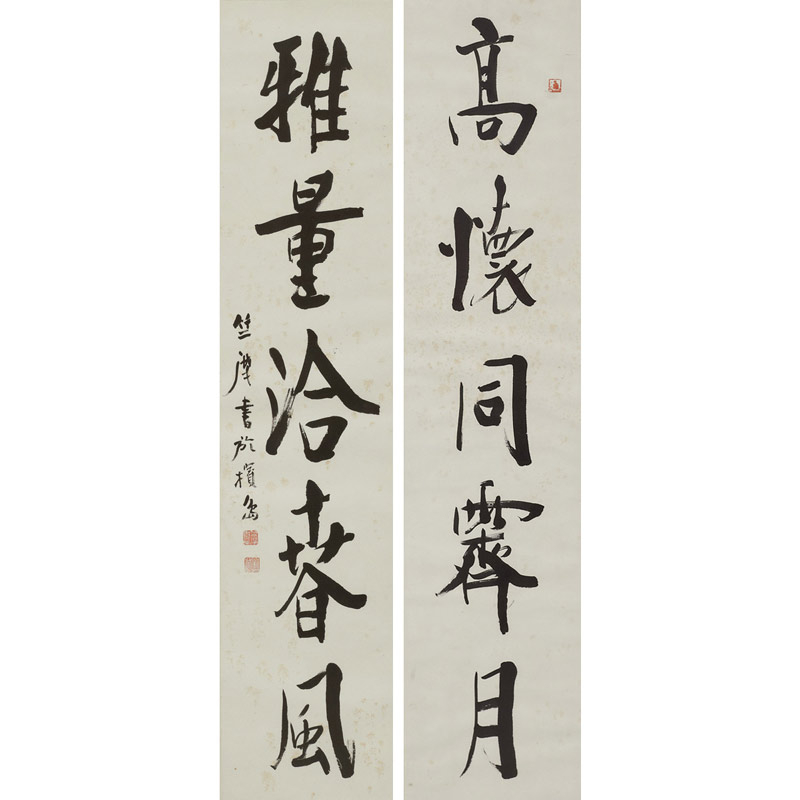 高懷同霽月
雅量洽春風
竺摩書於檳島